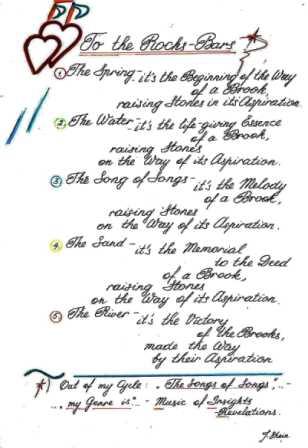 To the Rocks-Bars *)
① The Spring - it's the Beginning of the Way
of a Brook,
raising Stones in its Aspiration.
② The Water - it's the life-giving Essence
of a Brook,
raising Stones
on the Way of its Aspiration.
③ The Song of Songs - it's the Melody
of a Brook,
raising Stones
on the Way of its Aspiration.
④ The Sand - it's the Memorial
to the Deed
of a Brook,
raising Stones
on the Way of its Aspiration.
⑤ The River - it's the Victory
of the Brooks,
made the Way
by their Aspiration
*) Out of my Cycle: „The Songs of Songs"...-
"... my Genre is"... - Music of Insights
- Revelations.